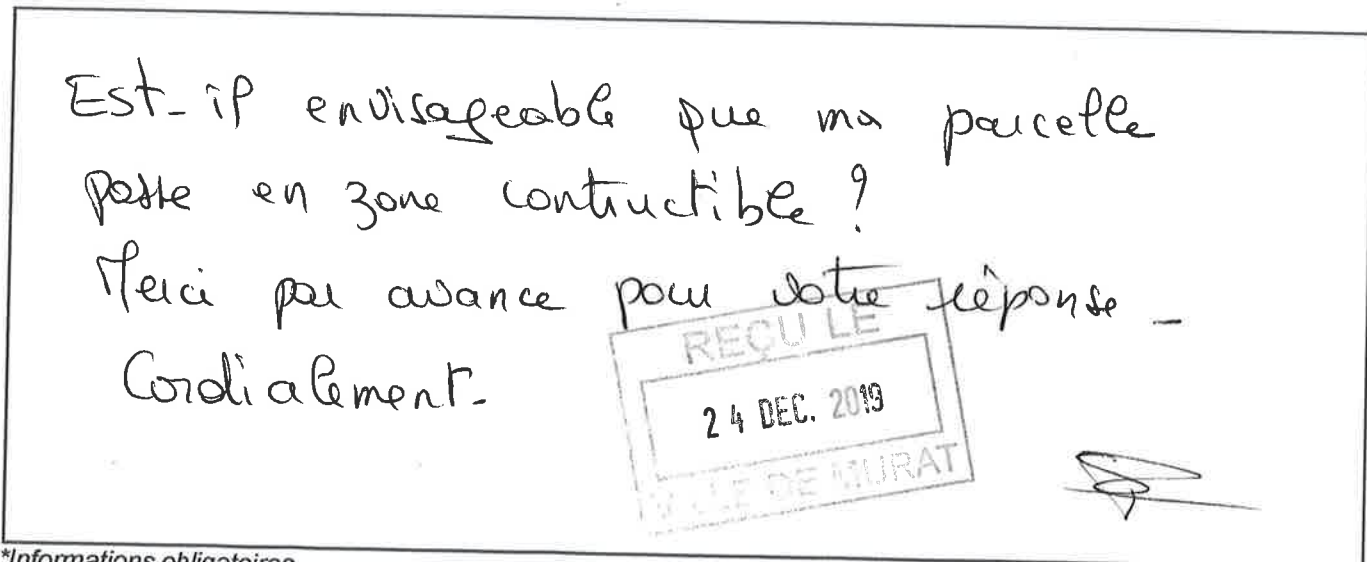 Est-il envisageable que ma parcelle
passe en zone contructible ?
Merci par avance pour votre réponse -
Cordialement.
REÇU LE
24 DEC. 2019
VILLE DE MURAT
*Informations obligatoires